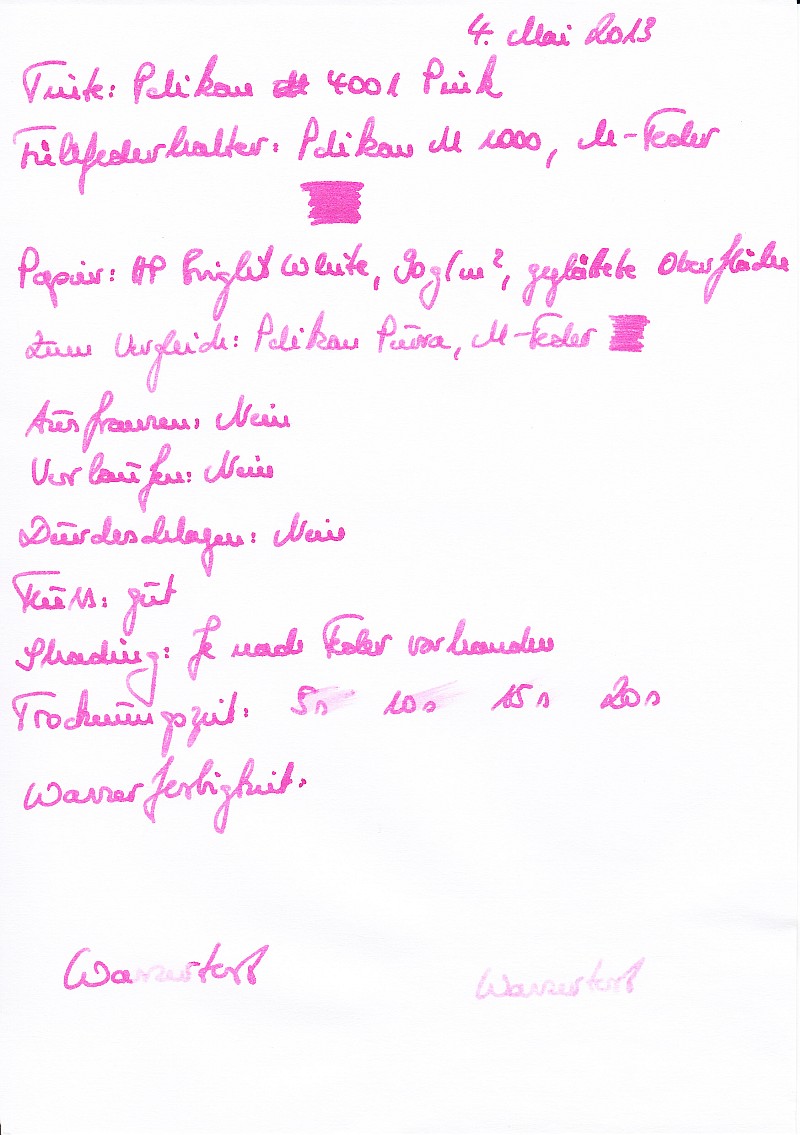 4. Mai 2013
Tinte: Pelikan 4001 Pink
Füllfederhalter: Pelikan M 1000, M-Feder
Papier: HP Bright White, 90g/m², geglättete Oberfläche
Zum Vergleich: Pelikan Pura, M-Feder
Ausfransen: Nein
Verlaufen: Nein
Durchschlagen: Nein
Fluss: gut
Shading: Je nach Feder vorhanden
Trocknungszeit: 5s 10s 15s 20s
Wasserfestigkeit:
Wassertest Wassertest